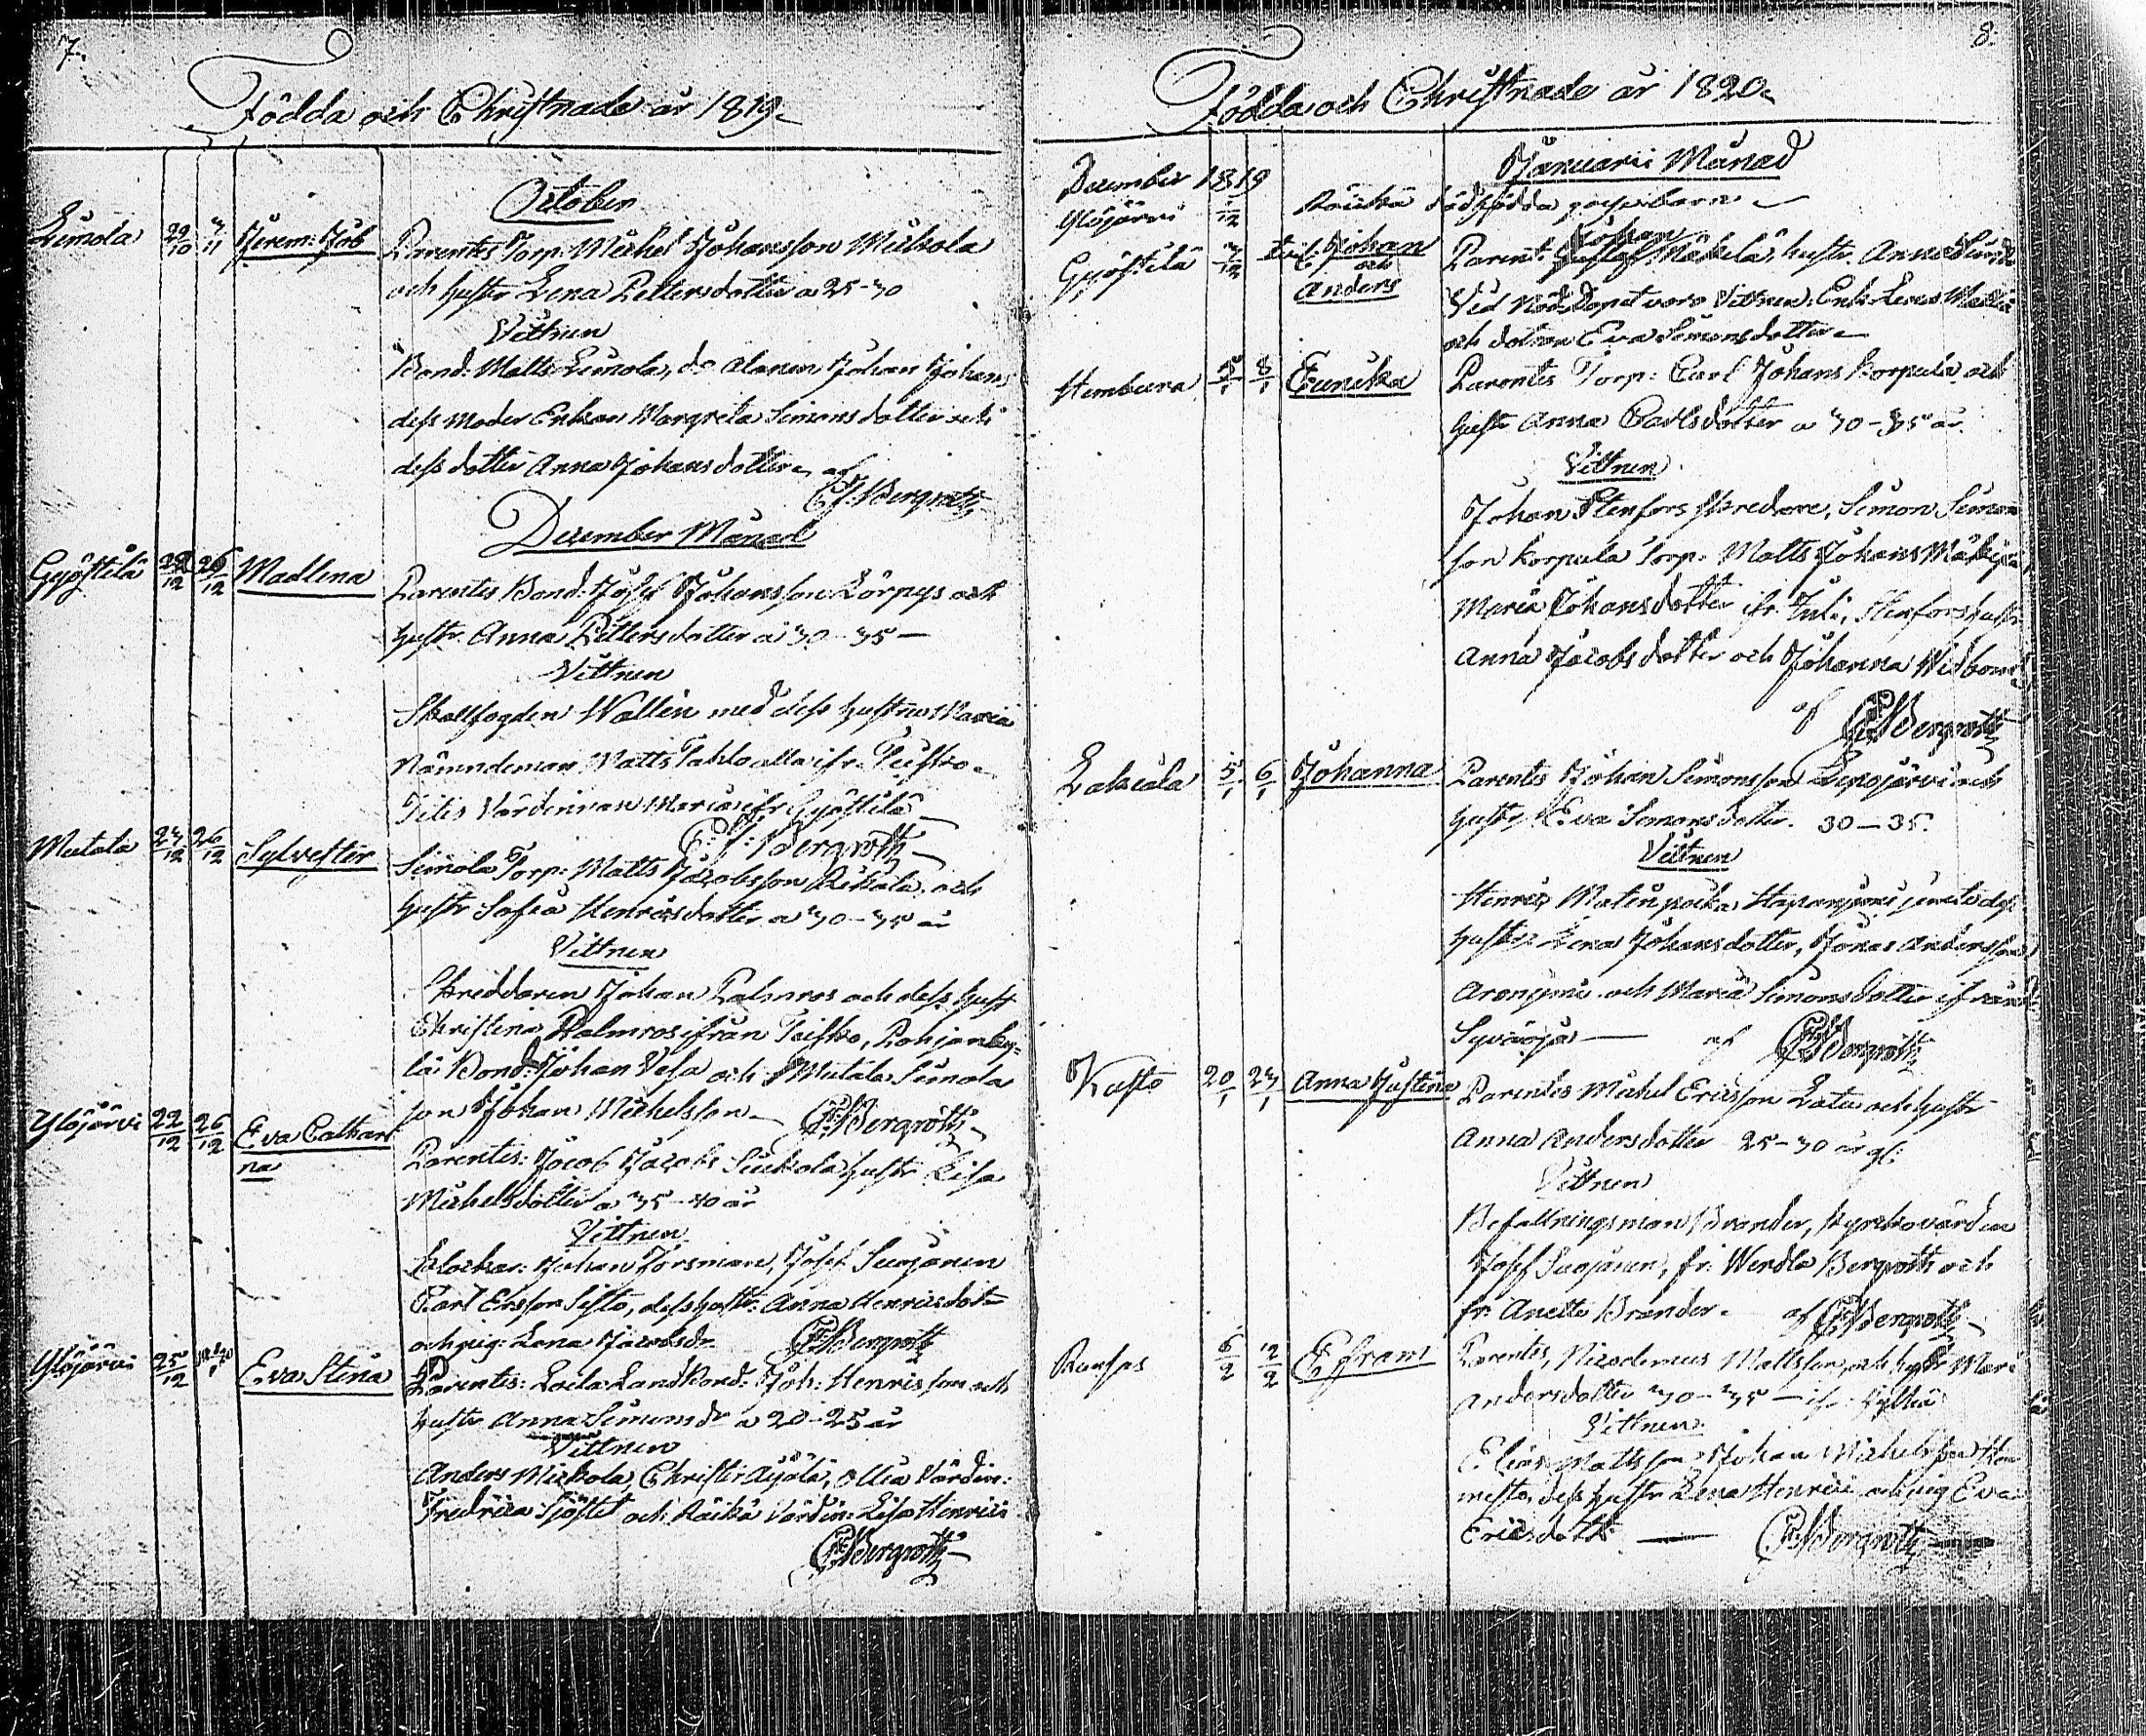 7.
Födda och Christnade år 1819
October
Limola 29/10 7/11 Jerem: Job Parentes Torp: Michel Johansson Mickola
och hustr Lena Pettersdotter a 25-30
Vittnen
Bond. Matts Limola, do Alanen Johan Johans
dess Moder Enkan Margreta Simonsdotter och
dess dotter Anna Johansdotter af
C J: Bergroth
December Månad
Gyöstilä 22/12 26/12 Madlena Parentes Bond: Josef Johansson Lörpys och
hustr. Anna Pettersdotter a 30-35
Vittnen
Skallfogden Wallin med dess hustru Maria
Nämndeman Matts Pahloalla ifr. Teisko
Värdinnan Maria ifr Gyöstilä
C: J: Bergroth
Mutala 24/12 26/12 Sylvester Simola Torp: Matts Jacobsson Rikala och
hustr Sofia Henricsdotter a 30-35 år
Vittnen
Skräddaren Johan Palmros och dess hust
Christina Palmros ifrån Teisko, Pohjanky=
lä: Bond: Johan Vesa och Mutala Simola
son Johan Michelsson C: J: Bergroth
Ylöjärvi 22/12 26/12 Eva Cathari
na
Parentes: Jacob Jacobs Siukola hustr Lisa
Michelsdotter a 35-40 år
Vittnen
Klockar: Johan Forsman, Josef Suojanen
Carl Ersson Sisto, dess hustr: Anna Henricsdotr
och pig: Lena Jacobsdr C: J: Bergroth
Ylöjärvi 25/12 Eva Stina Parentes: Landbond: Joh: Henricsson och
hustr Anna Simonsdr a 20-25 år
Vittnen
Anders Mickola, Christer Äijälä, Ollia Värdin:
Fredrica Sjöstet och Räikä Värdin: Lisa Henrics
C: J: Bergroth
8.
Födda och Christnade år 1820
Januarii Månad
December 1819
Ylöjärvi Räikä dödfödda
Johan
Gyöstilä 7/12 Johan Parent: Mäkelä, hustr. Anna
och
Anders Vid Nöd Dopet voro Vittnen: Enk. Lena
och dottren Eva Simonsdotter
Hembura 5/1 8/1 Eunika Parentes Torp: Carl Johans Korpula och
hustr Anna Carlsdotter a 30-35 år.
Vittnen
Johan Stenfors skredare, Simon Simon
son Korpula Torp. Matts Johans Mäkipä
Maria Johansdotter ifr. Juli, Stenfors hustr
Anna Jacobsdotter och Johanna Widbom
af C: J: Bergroth
Lakiala 5/1 6/1 Johanna Parentes Johan Simonsson Lepojärvi och
hustr. Eva Simonsdotter. 30-35.
Vittnen
Henric Matinpoika Haparijärvi jemte dess
hustr Lena Johansdotter, Jonas Andersson
och Maria Simonsdotter ifrån
Syväoja af C: J: Bergroth
Kasto 20/1 23/1 Anna Justina Parentes Michel Ericsson Latu och hustr
Anna Andersdotter 25-30 år gl:
Vittnen
Befallningsman Brander, Kyrkovärden
Josef Suojanen, fr: Wendla Bergroth och
fr. Anette Brander. af C: J: Bergroth
6/2 12/2 Efraim Parentes, Nicodemus Mattsson, och hustr Mari
Andersdotter 30-35 ifr Kyllia
Vittnen
Elias Mattsson Johan Michelsson
dess hustr Lena Henrics och pig Eva
Ericsdottr C: J: Bergroth